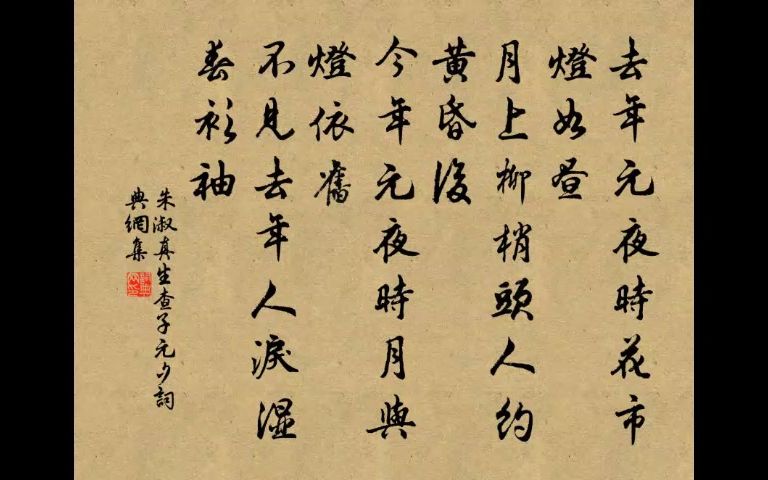 去年元夜時花市
燈如晝
月上柳梢頭人約
黃昏後
今年元夜時月與
燈依舊
不見去年人淚溼
春衫袖
朱淑真生查子元夕詞
典網集